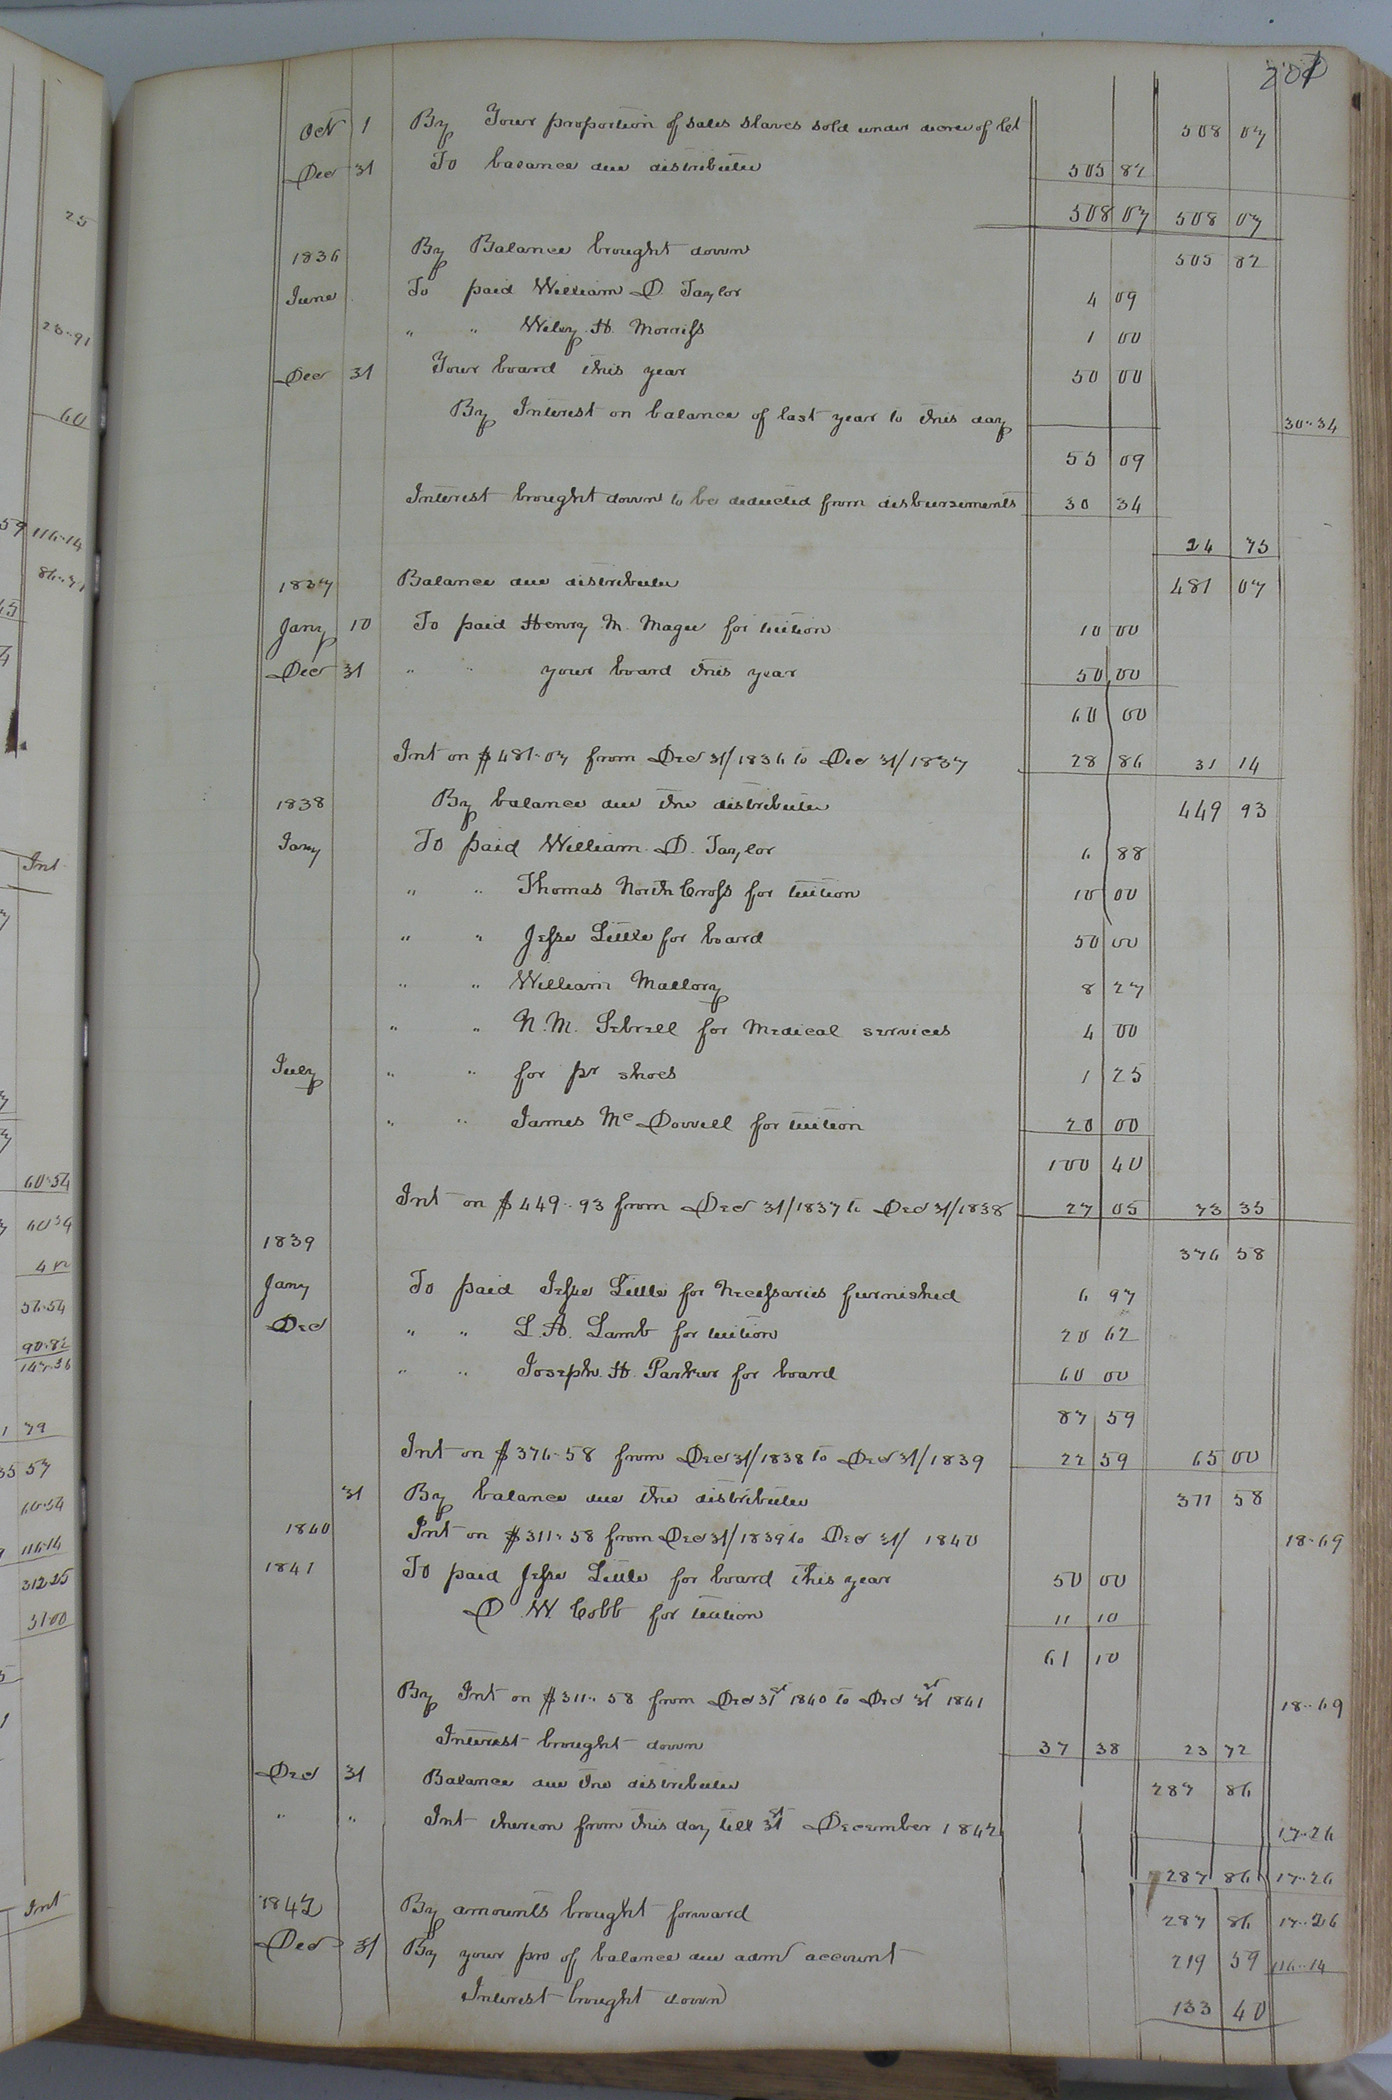 201
Oct 1 By Your proportion of sales slaves sold under decree of 508 07
Dec 31 To balance due distributee 505 82
508 07 508 07
1836 By Balance brought down 505 82
June To paid William D. Taylor 4 09
" " Wiley H. Morriss 1 00
Dec 31 Your board this year 50 00
By Interest on balance of last year to this day 30-34
55 09
Interest brought down to be deducted from disbursements 30 34
24 75
1837 Balance due distributee 481 07
Jany 10 To paid Henry M. Magee for tuition 10 00
Dec 31 " " your board this year 50,00
60 00
Int on $481-07 from Dec 31/1836 to Dec 31/1837 28 86 31 14
1838 By balance due the distributee 449 93
Jany To paid William D. Taylor 6 88
" " Thomas North Cross for tuition 10 00
" " Jesse Little for board 50 00
" " William Mallory 8 27
" " N. M. Sebrell for Medical services 4 00
July " " for pr shoes 1 25
" " James Mc Dowell for tuition 20 00
100 40
Int on $449..93 from Dec 31/1837 to Dec 31/1838 27 05 73 35
1839 376 58
Jany To paid Jesse Little for Necessaries furnished 6 97
Dec " " L. A. Lamb for tuition 20 62
" " Joseph. H. Parker for board 60 00
87 59
Int on $376-58 from Dec 31/1838 to Dec 31/1839 22 59 65 00
31 By balance due the distributee 311 58
1840 Int on $311-58 from Dec 31/1839 to Dec 31/ 1840 18-69
1841 To paid Jesse Little for board this year 50 00
D. W. Cobb for tuition 11 10
61 10
By Int on $311..58 from Dec 31st 1840 to Dec 31st 1841 18..69
Interest brought down 37 38 23 72
Dec 31 Balance due the distributee 287 86
" " Int thereon from this day till 31st December 1842 17-26
287 86 17-26
1842 By amounts brought forward 287 86 17..26
Dec 31 By your pro of balance due adm account 219 59 116..14
Interest brought down 133 40
25
28-91
60
59 116-14
86-71
Int
60-54
60 54
56-54
90-82
147-36
1 79
35 57
60-54
116-14
312 25
51 00
Int